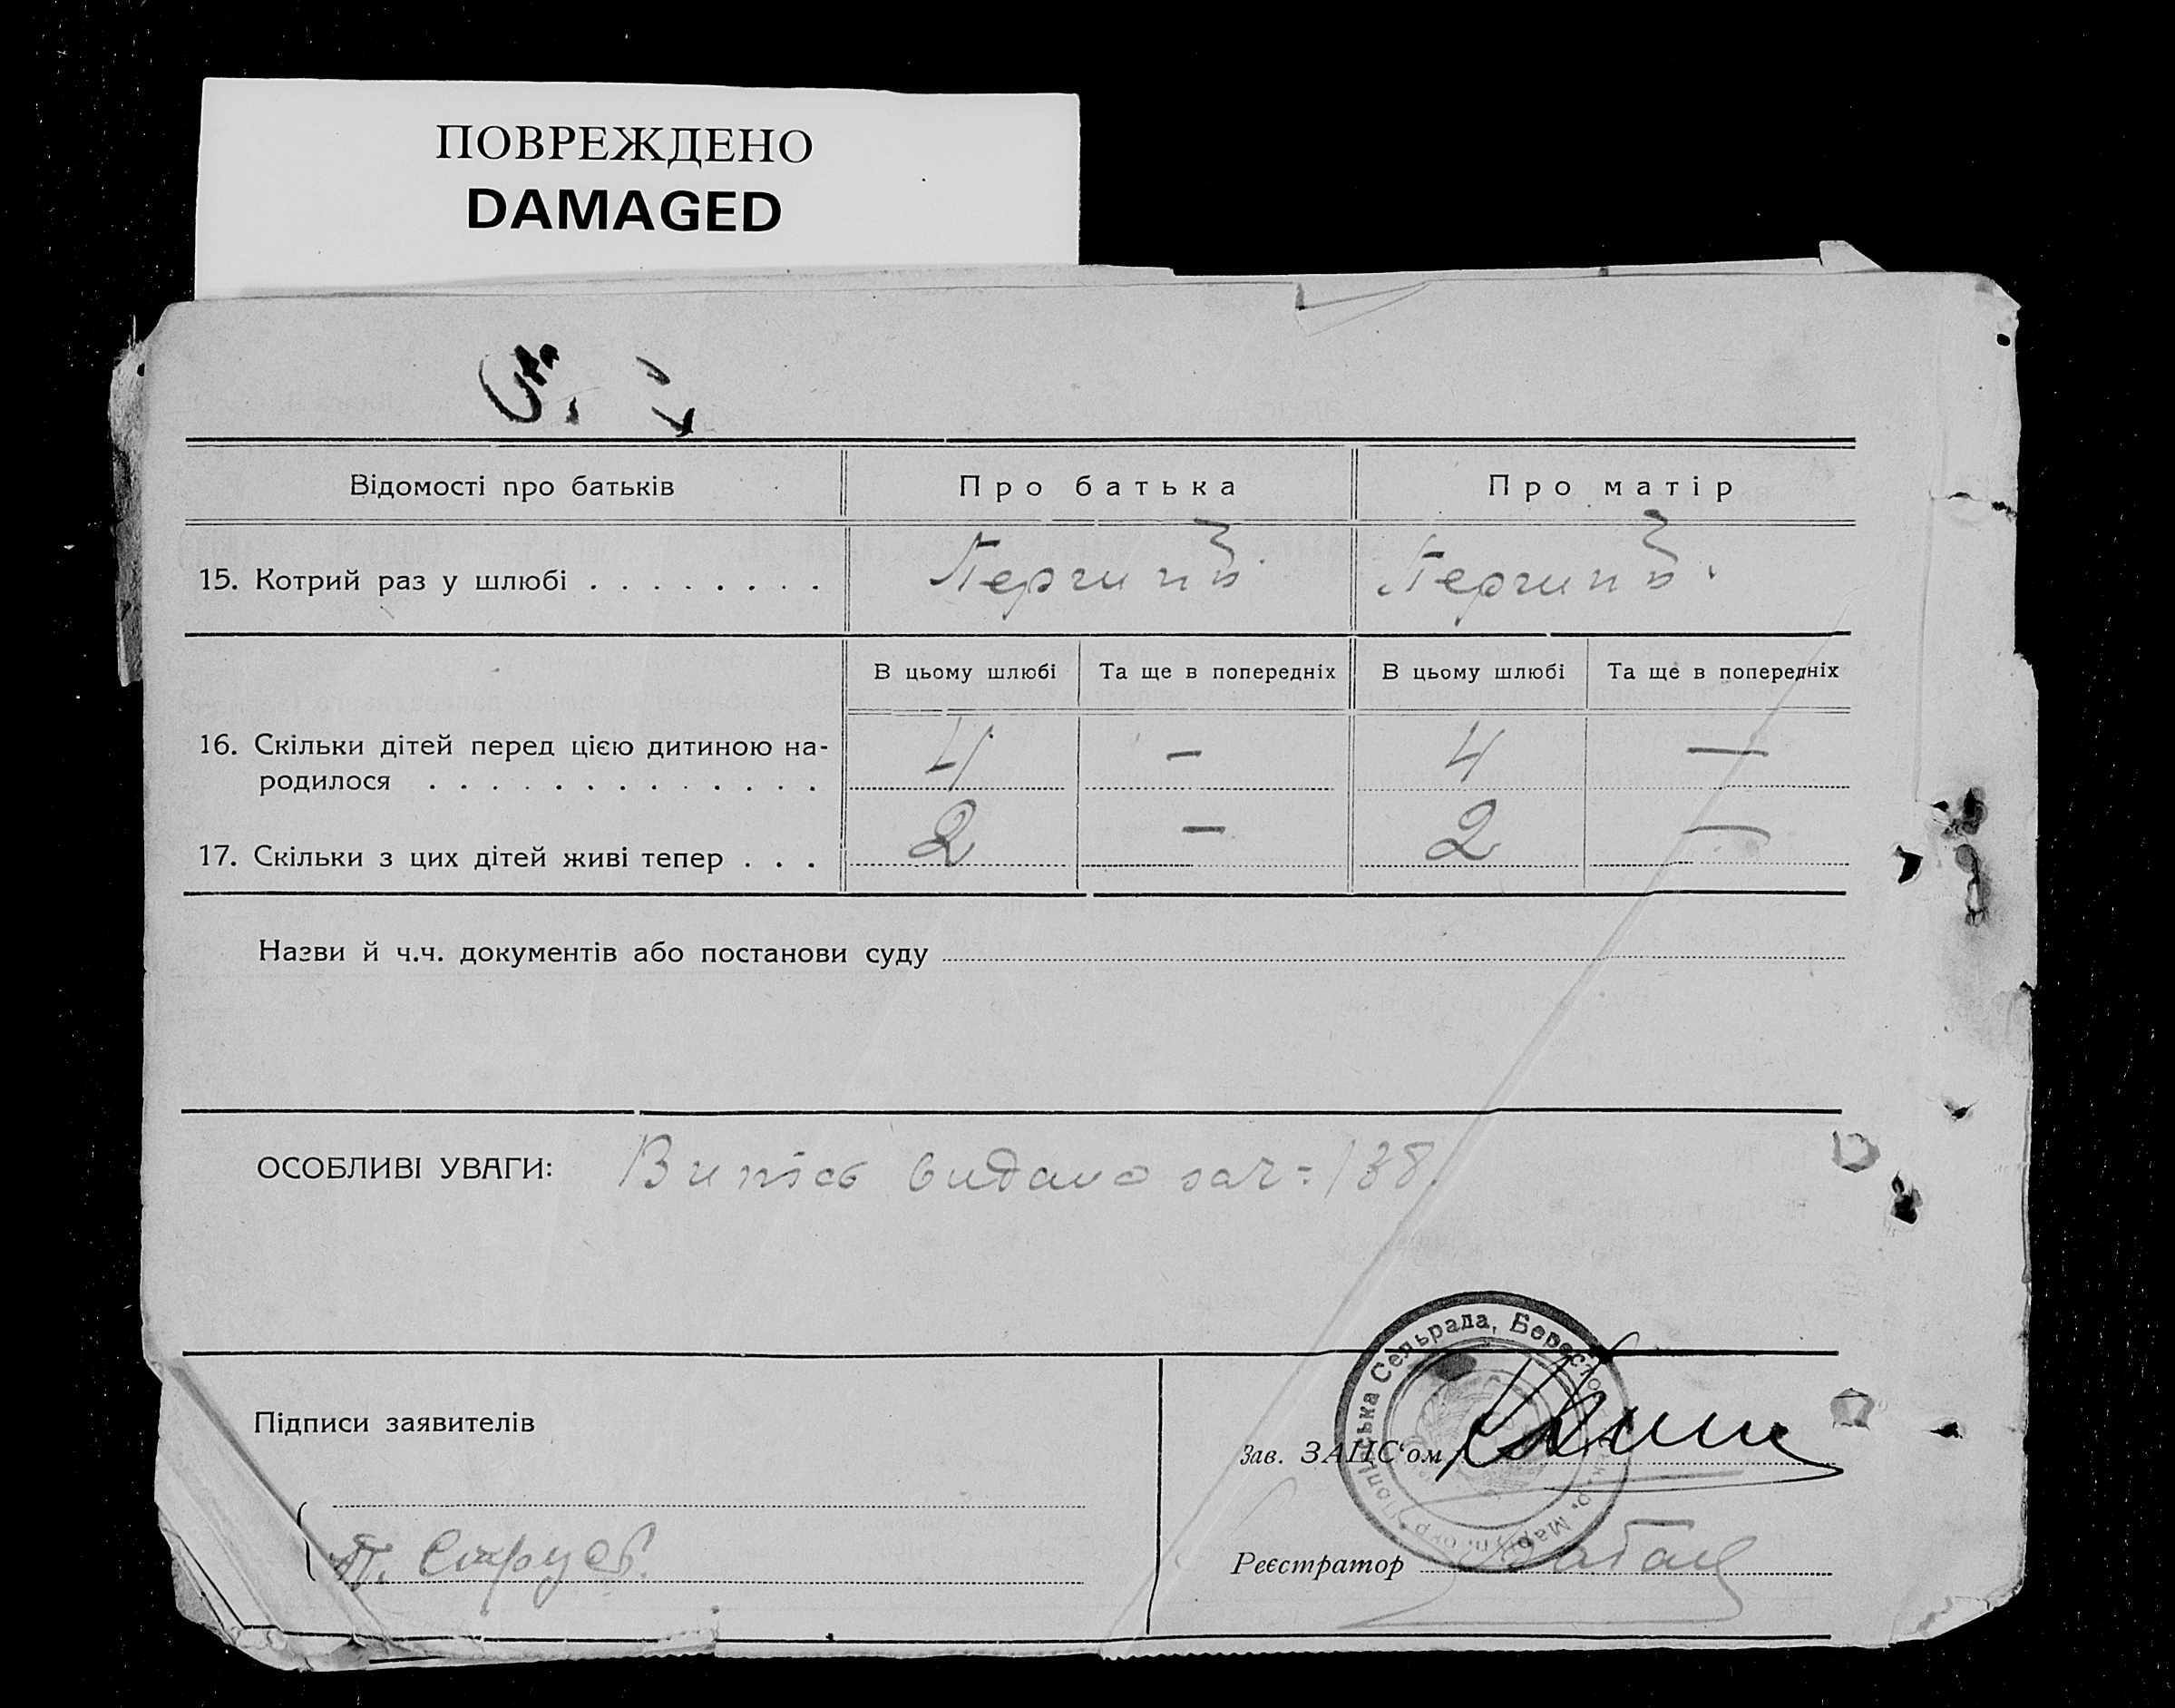 ПОВРЕЖДЕНО
DAMAGED
Відомості про батьків
Про батька
Про матір
15. Котрий раз у шлюбі . . . . . . . .
В цьому шлюбі
Та ще в попередніх
В цьому шлюбі
Та ще в попередніх
16. Скільки дітей перед цією дитиною на-
родилося . . . . . . . . . . . .
4
—
4
—
17. Скільки з цих дітей живі тепер . . .
2
—
2
—
Назви й ч.ч. документів або постанови суду
ОСОБЛИВІ УВАГИ: Випісь видано за ч= 138.
Підписи заявителів
Зав. ЗАПС'ом
Реєстратор
Сельрада,